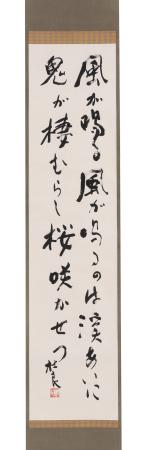 風が鳴る風が鳴るのは渓あひに
鬼が棲むらし桜咲かせつ